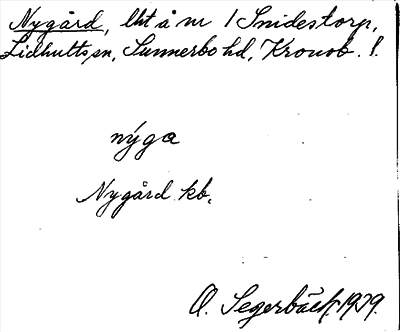 Nygård, lht å nr 1 Smidestorp,
Lidhults sn, Sunnerbo hd, Kronob. l.
nýga
Nygård kb.
O. Segerbäck 1929.